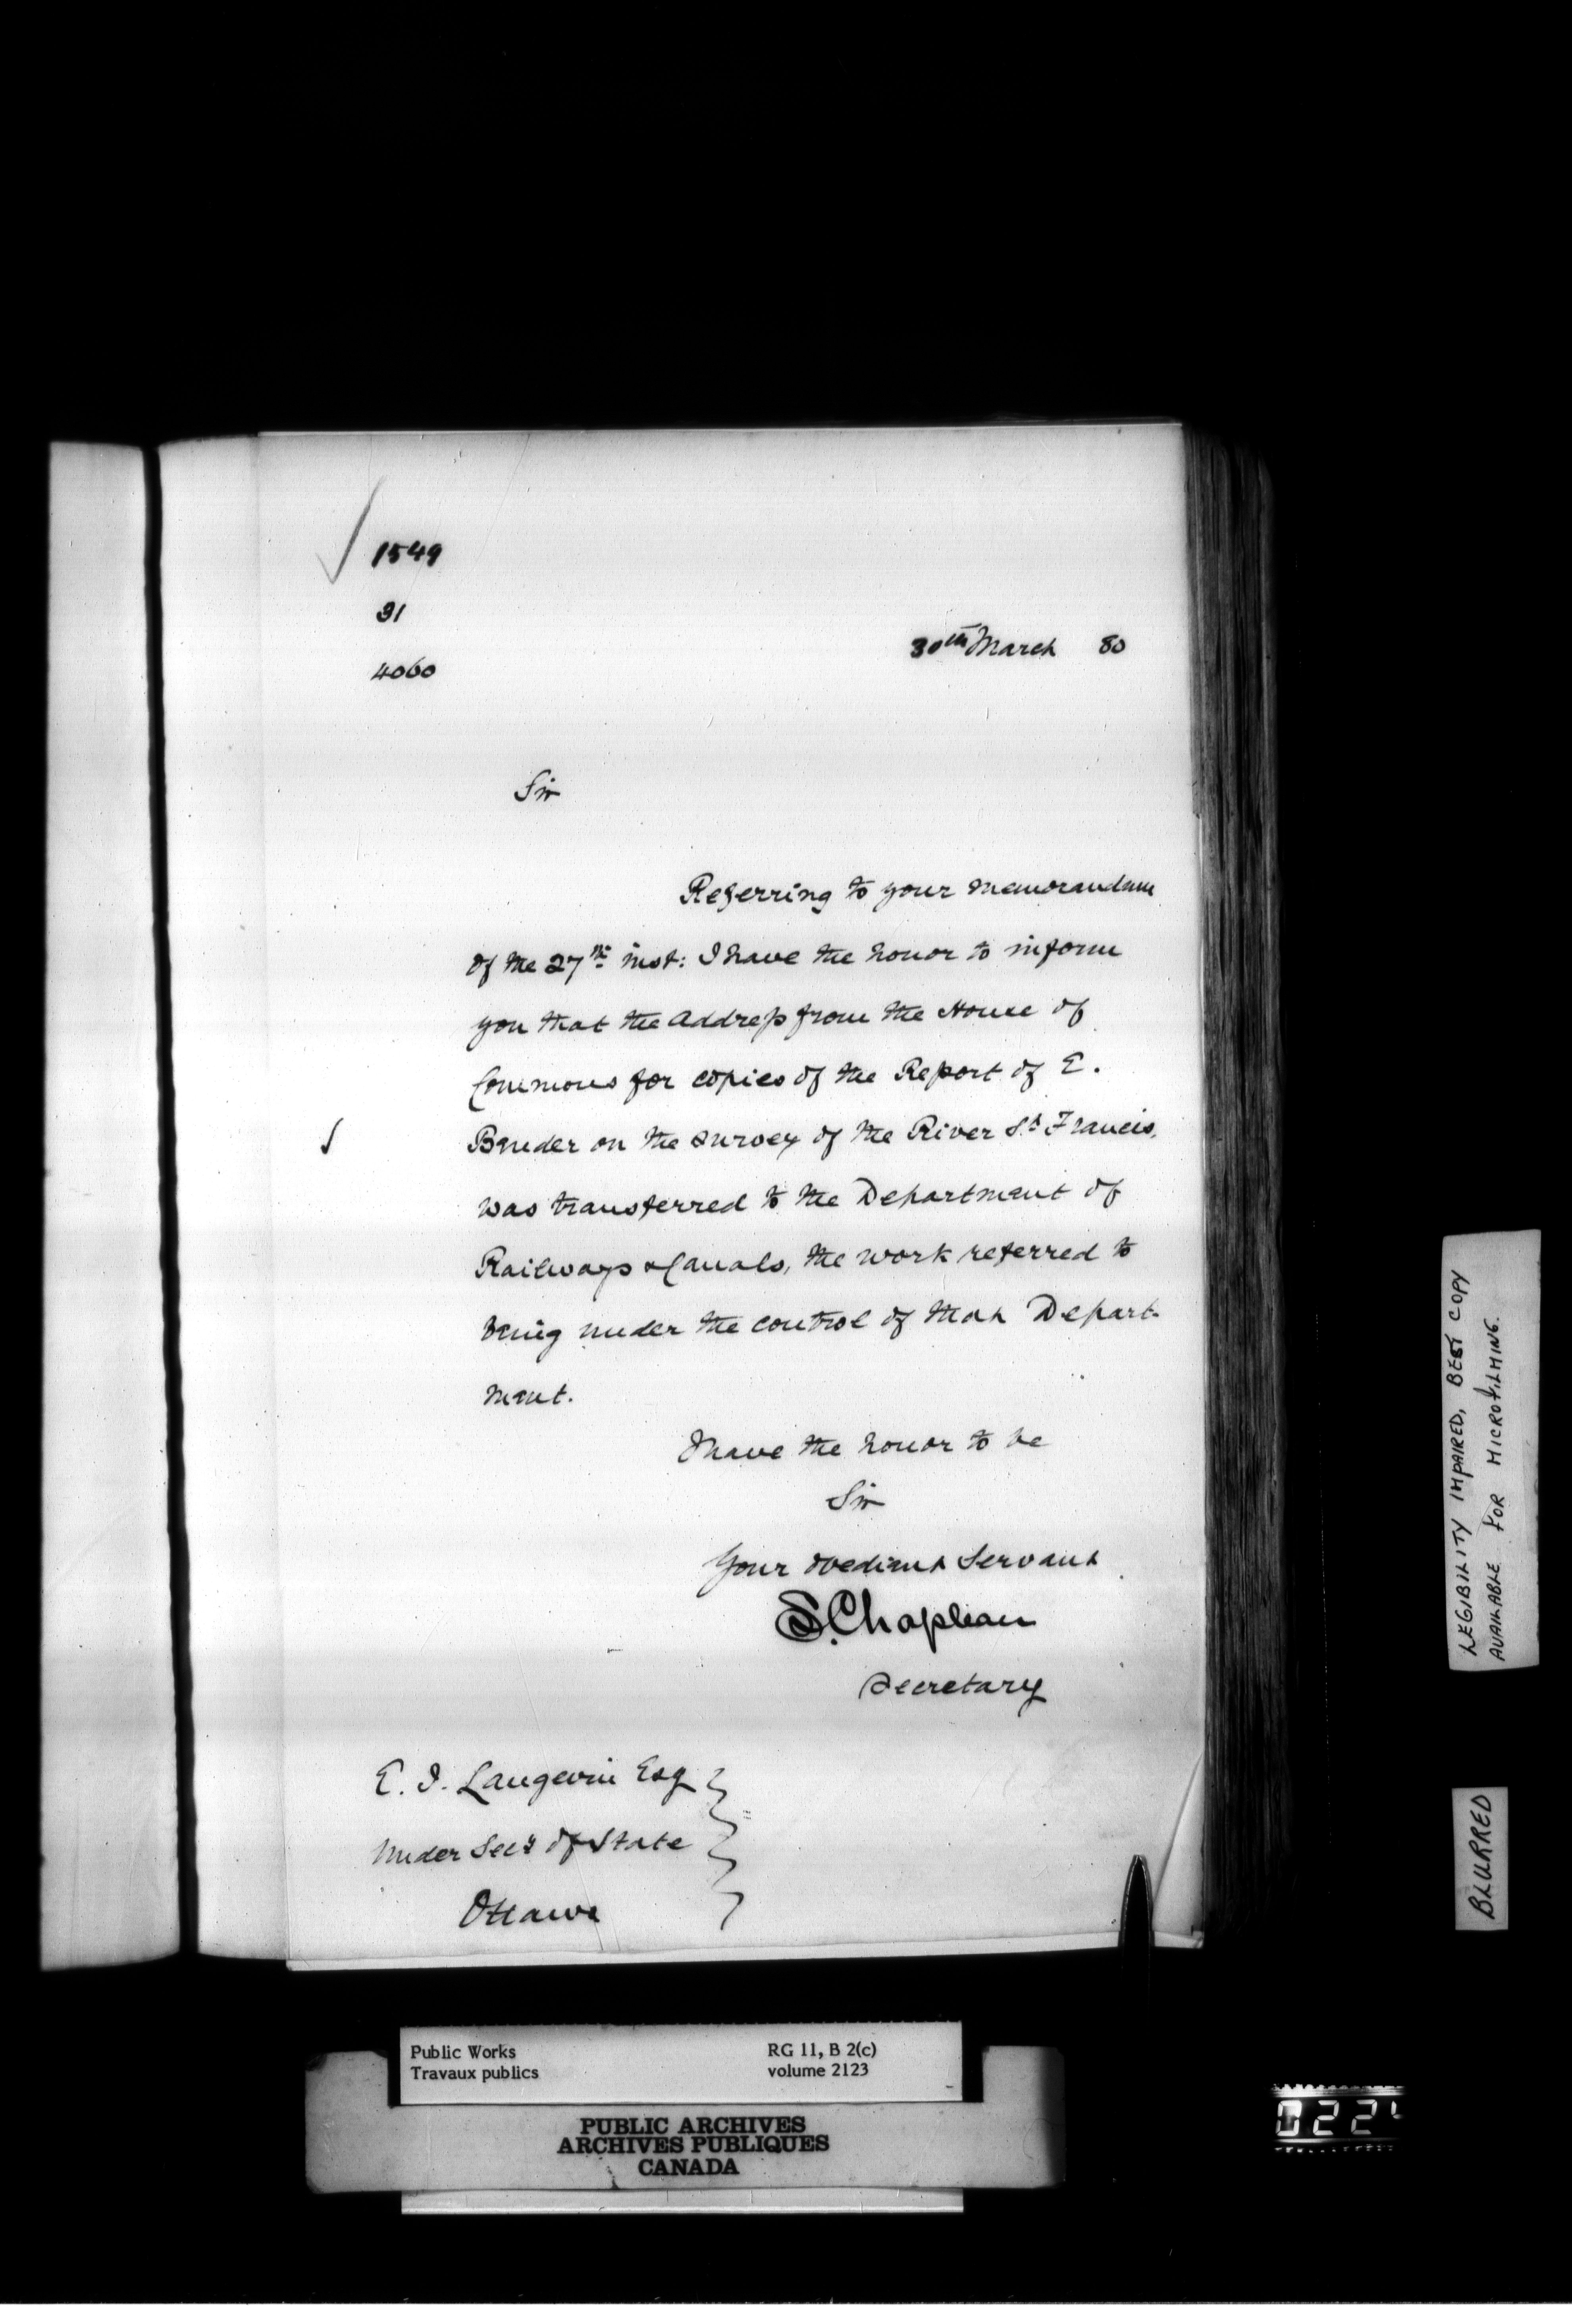 1549
31
4060
30th March 80
Sir
Referring to your memorandum
of the 27th inst: I have the honor to inform
you that the Address from the House of
Commons for copies of the Report of E.
Bender on the survey of the River St. Francis,
was transferred to the Department of
Railways & Canals, the work referred to
being under the control of that Depart-
ment.
I have the honor to be
Sir
Your obedient Servant
S. Chapleau
Secretary
E. J. Langevin Esq
Under Secy of State
Ottawa
LEGIBILITY IMPAIRED, BEST COPY
AVAILABLE FOR MICROFILMING.
BLURRED
Public Works RG 11, B 2(c)
Travaux publics volume 2123
PUBLIC ARCHIVES
ARCHIVES PUBLIQUES
CANADA
022